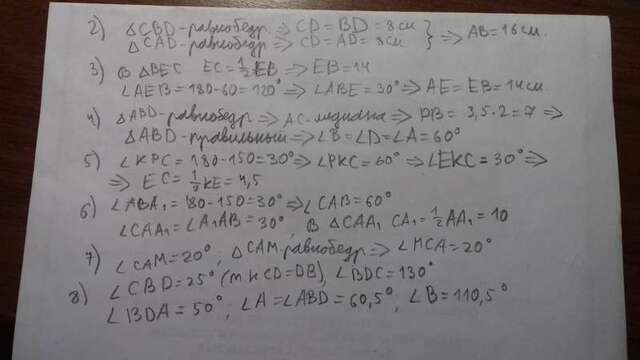 2) △CBD-равнобедр ⇒ CD = BD = 8см } ⇒ AB = 16 см.
△CAD-равнобедр ⇒ CD = AD = 8см
3) В △BEC EC = 1/2 EB ⇒ EB = 14
∠AEB = 180-60 = 120° ⇒ ∠ABE = 30° ⇒ AE = EB = 14 см
4) △ABD-равнобедр ⇒ AC-медиана ⇒ DB = 3,5·2 = 7 ⇒
△ABD-правильный ⇒ ∠B = ∠D = ∠A = 60°
5) ∠KPC = 180-150 = 30° ⇒ ∠PKC = 60° ⇒ ∠EKC = 30° ⇒
⇒ EC = 1/2 KE = 4,5
6) ∠ABA₁ = 180-150 = 30° ⇒ ∠CAB = 60°
∠CAA₁ = ∠A₁AB = 30° В △CAA₁ CA₁ = 1/2 AA₁ = 10
7) ∠CAM = 20°, △CAM равнобедр ⇒ ∠MCA = 20°
8) ∠CBD = 25° (т к CD = DB), ∠BDC = 130°
∠BDA = 50°, ∠A = ∠ABD = 60,5°, ∠B = 110,5°